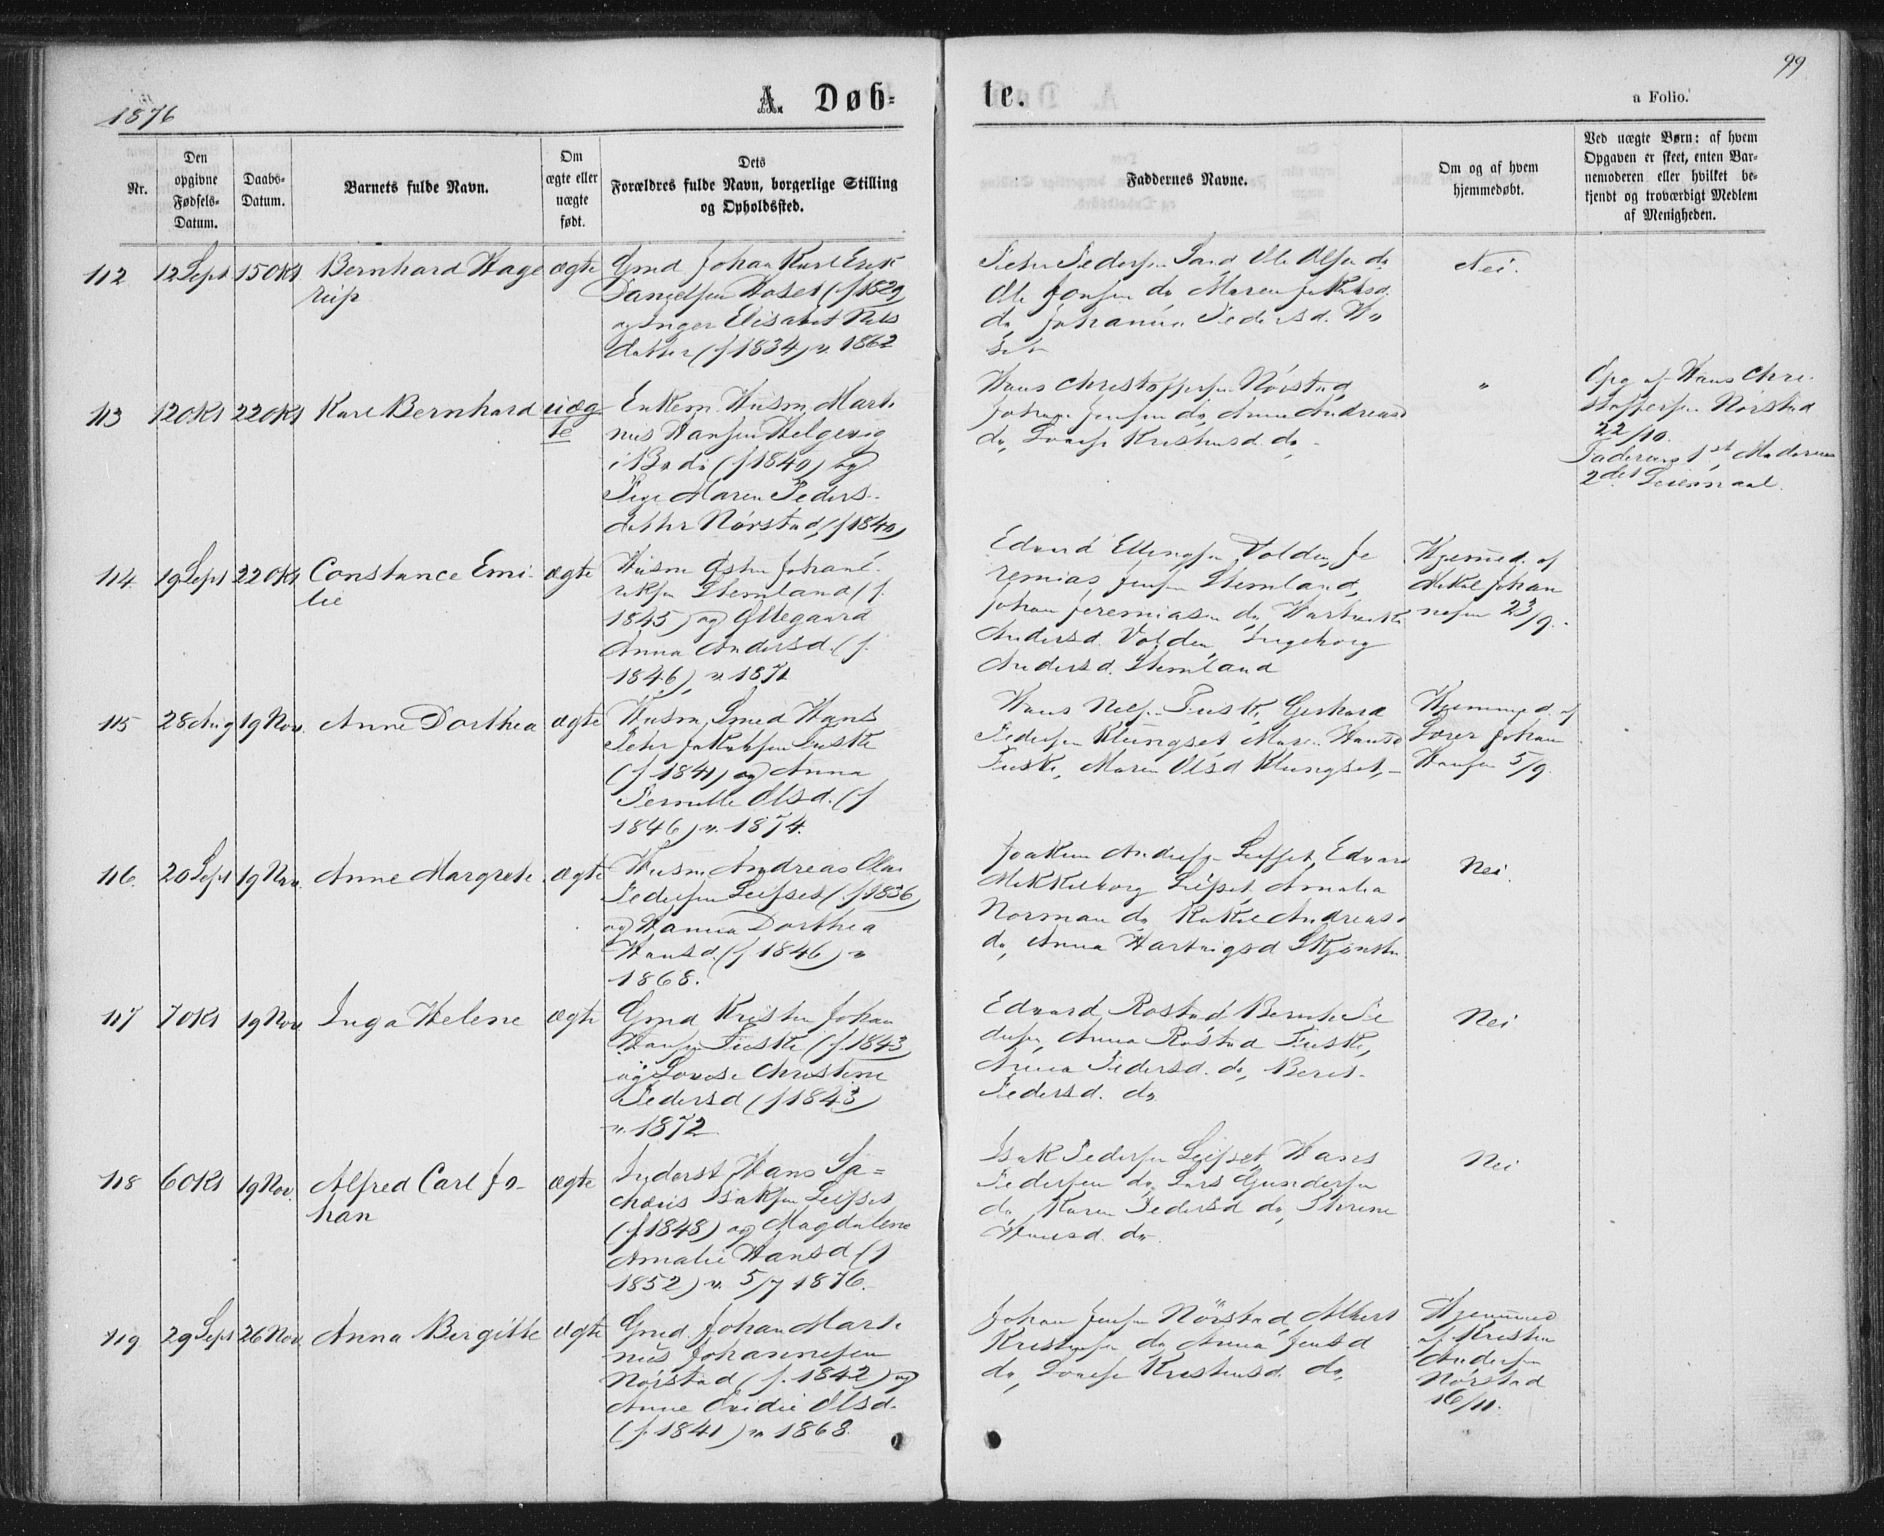 1876
A. Døb-
te.
99
a Folio.
Nr.
Den
opgivne
Fødsels-
Datum.
Daabs-
Datum.
Barnets fulde Navn.
Om
ægte eller
uægte
født.
Dets
Forældres fulde Navn, borgerlige Stilling
og Opholdssted.
Faddernes Navne.
Om og af hvem
hjemmedøbt.
Ved uægte Børn: af hvem
Opgaven er skeet, enten Bar-
nemoderen eller hvilket be-
kjendt og troværdigt Medlem
af Menigheden.
112
12 Sept
15 Okt
Bernhard Hage
rup
ægte
Gmd Johan Karl Erik
Danielsen Hoset (f 1829)
og Inger Elisabet Nils
datter (f 1834) v. 1862
Peder Pedersen Sand Ole Olsen do
Ole Jonsen do, Maren Jakobsd.
do, Johanna Pedersd. Ho
set
Nei.
113
12 Okt
22 Okt
Karl Bernhard
uæg
te
Enkem. Husm. Marti
nus Hansen Helgevig
i Bodø (f 1840) og
Pige Maren Peders-
datter Nørstad (f 1840)
Hans Christoffersen Nørstad,
Johan Jensen do, Anne Andreasd
do, Lovise Kristensd. do,
"
Opg af Hans Chri-
stoffersen Nørstad
22/10.
Faderens 1st, Moderens
2det Leiermaal.
114
19 Sept
22 Okt
Constance Emi-
lie
ægte
Husm Johan
Stemland (f.
1845) og Ollegaard
Anna Andersd. (f.
1846), v. 1871
Edvard Ellingsen Volden, Je
remias Jensen Stemland,
Johan Jeremiasen do, Hartvikke
Andersd. Volden, Ingeborg
Andersd. Stemland
Hjemmed. af
Johan
nesen 23/9.
115
28 Aug
19 Nov.
Anne Dorthea
ægte
Husm. Smed Hans
Peter Jakobsen Fuske
(f 1841) og Anna
Pernille Olsd. (f
1846) v. 1874.
Hans Nilsen Fuske, Gerhard
Pedersen Klungset, Maren Hansd
Fuske, Maren Olsd Klungset,
Hjemmed. af
Lærer Johan
Hansen 5/9.
116.
20 Sept
19 Nov.
Anne Margrete
ægte
Husm. Andreas Olai
Pedersen Leifset (f 1836)
og Hanna Dorthea
Hansd. (f 1846) v
1868.
Joakim Andersen Leifset, Edvard
Mikkelborg Leifset, Amalia
Norman do, Rakel Andreasd
do, Anna Hartvigsd Skjønstu
Nei.
117
7 Okt
19 Nov
Inga Helene
ægte
Gmd Kristen Johan
Hansen Fuske (f 1843)
og Lovise Christine
Pedersd (f 1843)
v. 1872
Edvard Røstad, Bernt Pe
dersen, Anna Røstad Fuske,
Anna Pedersd. do, Berit
Pedersd. do
Nei
118
6 Okt
19 Nov.
Alfred Carl Jo-
han
ægte
Inderst Hans Sa-
charis Isaksen Leifset
(f 1848) og Magdalene
Amalie Hansd (f
1852) v. 5/7 1876.
Isak Pedersen Leifset, Hans
Pedersen do, Lars Gundersen
do, Karen Pedersd do, Thrine
Hansd. do.
Nei
119
29 Sept
26 Nov.
Anna Birgitte
ægte
Gmd. Johan Marti
nus Johannesen
Nørstad (f. 1842) og
Anne Ovidie Olsd.
(f. 1841) v. 1868.
Johan Jensen Nørstad, Albert
Kristensen do, Anna Jensd
do, Lovise Kristensd. do,
Hjemmed
af Kristen
Andersen
Nørstad
16/11.